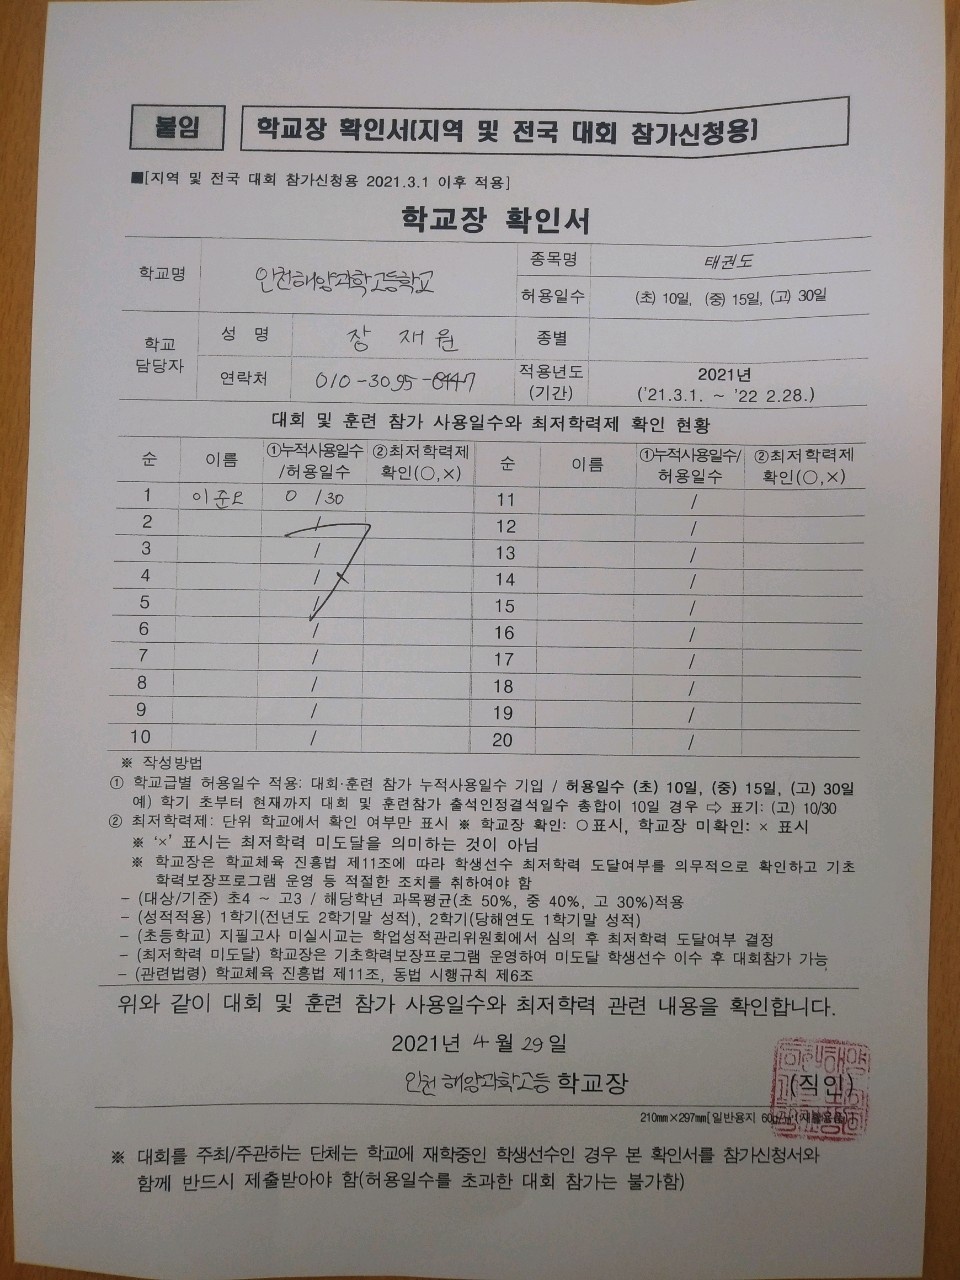 붙임
학교장 확인서(지역 및 전국 대회 참가신청용)
■[지역 및 전국 대회 참가신청용 2021.3.1 이후 적용]
학교장 확인서
학교명 인천해양과학고등학교 종목명 태권도
허용일수 (초) 10일, (중) 15일, (고) 30일
학교 담당자 성 명 장 재 원 종별
연락처 010-3095-0447 적용년도 (기간) 2021년 ('21.3.1. ~ '22 2.28.)
대회 및 훈련 참가 사용일수와 최저학력제 확인 현황
순 이름 ①누적사용일수/허용일수 ②최저학력제 확인(○,×) 순 이름 ①누적사용일수/허용일수 ②최저학력제 확인(○,×)
1 이준 0 /30 11 /
2 / 12 /
3 / 13 /
4 / 14 /
5 / 15 /
6 / 16 /
7 / 17 /
8 / 18 /
9 / 19 /
10 / 20 /
※ 작성방법
① 학교급별 허용일수 적용: 대회·훈련 참가 누적사용일수 기입 / 허용일수 (초) 10일, (중) 15일, (고) 30일
예) 학기 초부터 현재까지 대회 및 훈련참가 출석인정결석일수 총합이 10일 경우 ⇨ 표기: (고) 10/30
② 최저학력제: 단위 학교에서 확인 여부만 표시 ※ 학교장 확인: ○표시, 학교장 미확인: × 표시
※ '×' 표시는 최저학력 미도달을 의미하는 것이 아님
※ 학교장은 학교체육 진흥법 제11조에 따라 학생선수 최저학력 도달여부를 의무적으로 확인하고 기초
학력보장프로그램 운영 등 적절한 조치를 취하여야 함
– (대상/기준) 초4 ~ 고3 / 해당학년 과목평균(초 50%, 중 40%, 고 30%)적용
– (성적적용) 1학기(전년도 2학기말 성적), 2학기(당해연도 1학기말 성적)
– (초등학교) 지필고사 미실시교는 학업성적관리위원회에서 심의 후 최저학력 도달여부 결정
– (최저학력 미도달) 학교장은 기초학력보장프로그램 운영하여 미도달 학생선수 이수 후 대회참가 가능
– (관련법령) 학교체육 진흥법 제11조, 동법 시행규칙 제6조
위와 같이 대회 및 훈련 참가 사용일수와 최저학력 관련 내용을 확인합니다.
2021년 4월 29일
인천해양과학고등 학교장 (직인)
210㎜×297㎜[일반용지 60g/㎡(재활용품)]
※ 대회를 주최/주관하는 단체는 학교에 재학중인 학생선수인 경우 본 확인서를 참가신청서와
함께 반드시 제출받아야 함(허용일수를 초과한 대회 참가는 불가함)